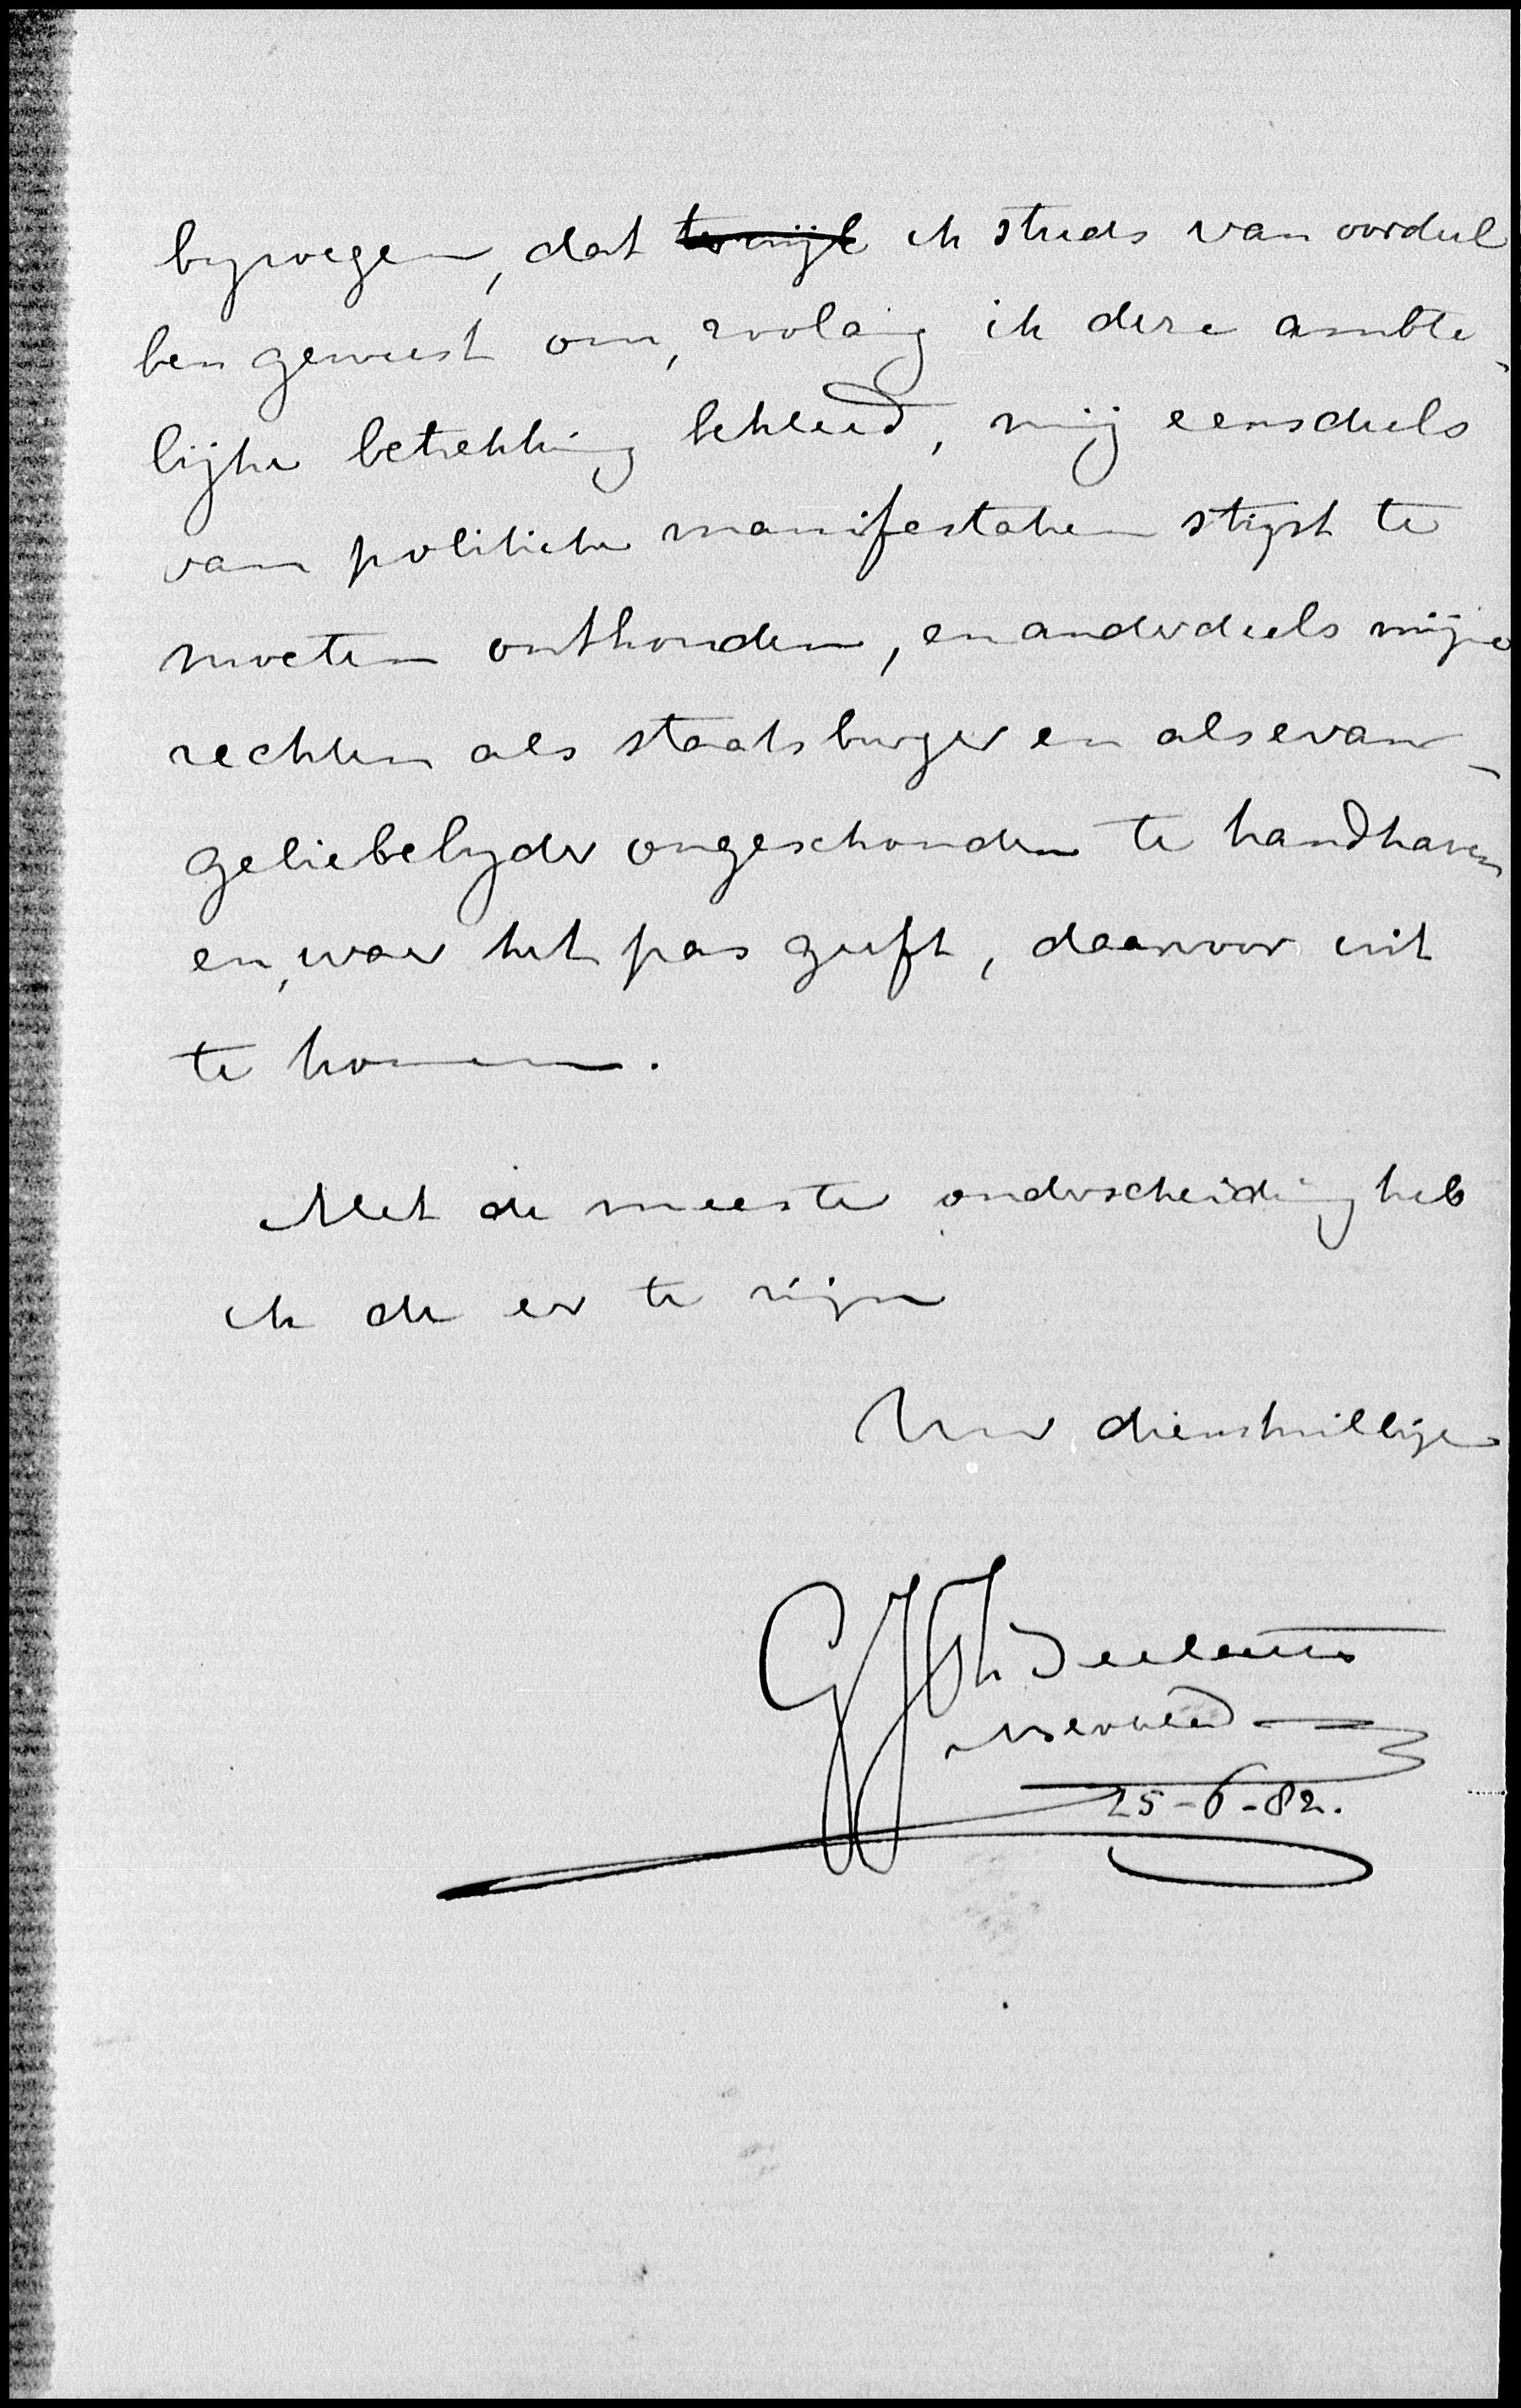 byvoegen, dat ~~terwijl~~ ik steeds van oordeel
ben geweest om, zoolang ik deze ambte-
lijke betrekking bekleed, mij eensdeels
van politieke manifestatien stipt te
moeten onthouden, en anderdeels mijne
rechten als staatsburger en als evan-
geliebelyder ongeschonden te handhaven
en, waar het pas geeft, daarvoor uit
te komen.
Met de meeste onderscheiding heb
ik de eer te zijn
Uw dienstwillige
25-6-82.